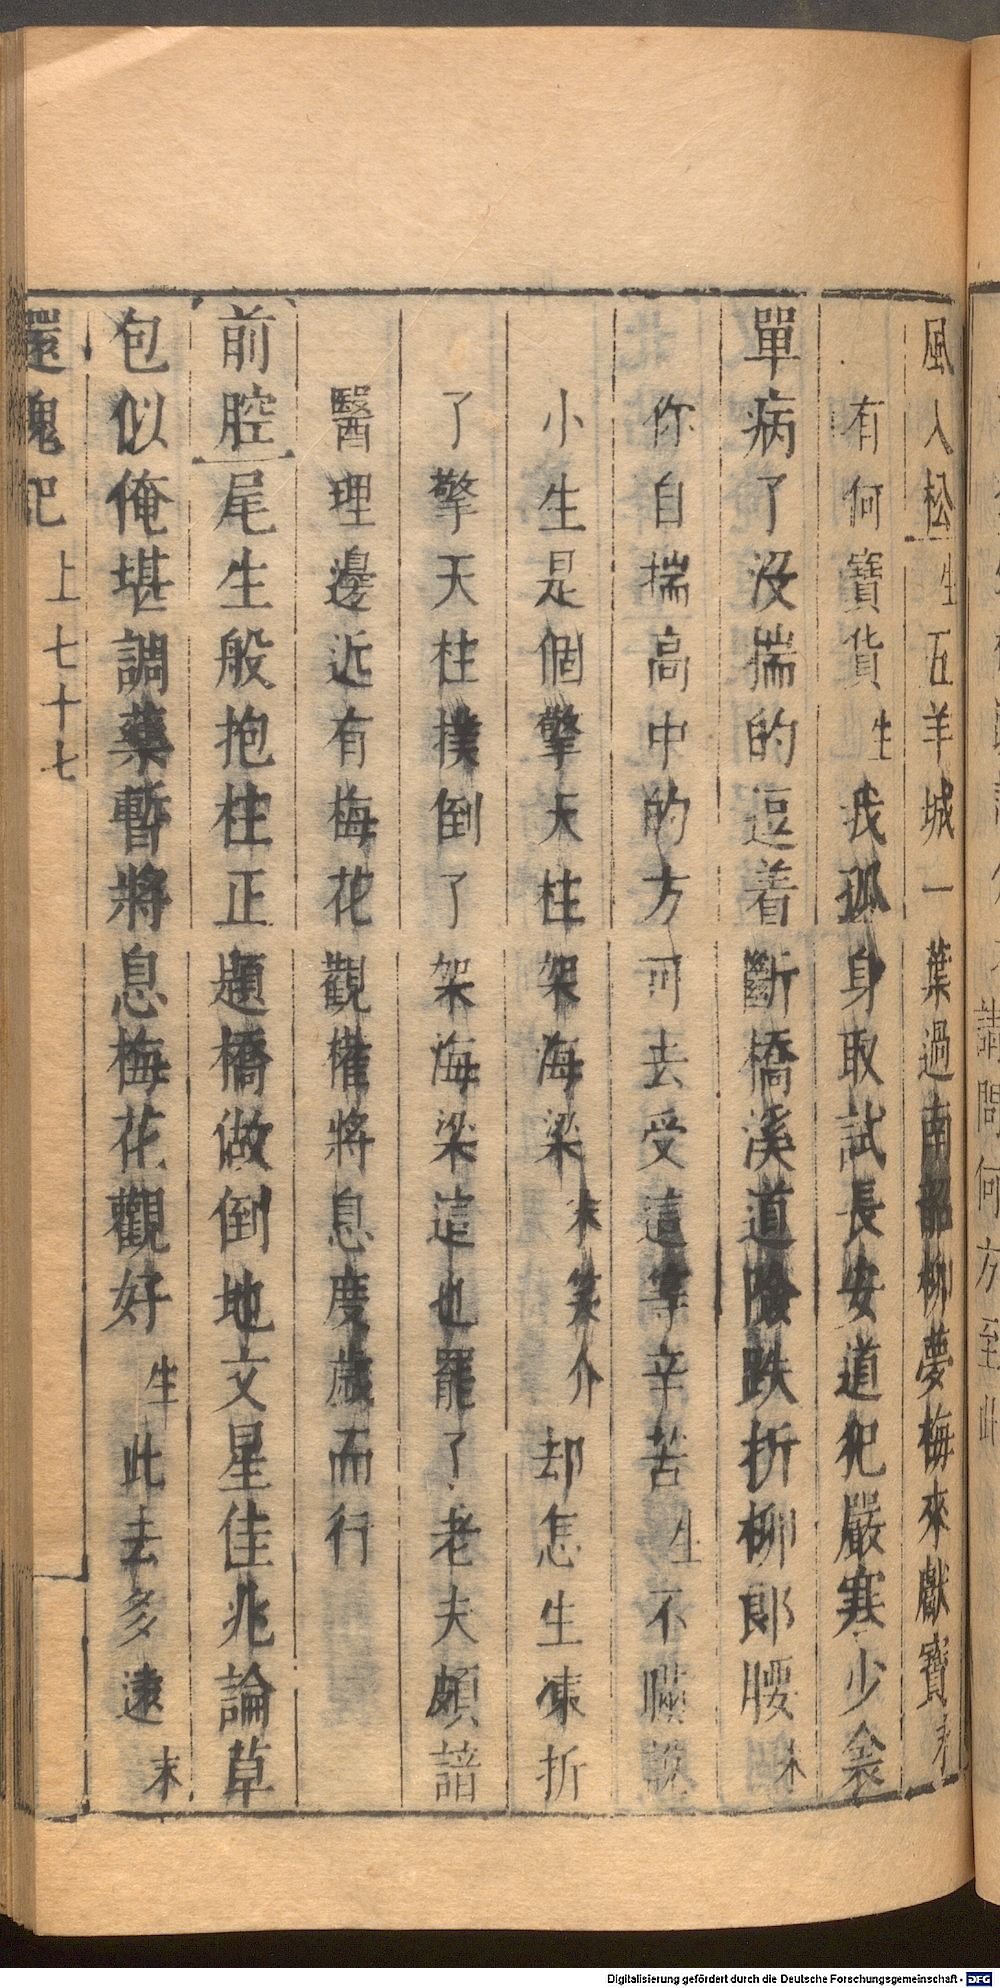 風入松生五羊城一葉過南韶柳夢梅來獻寶末
有何寶貨生我孤身取試長安道犯嚴寒少衾
單病了沒揣的逗着斷橋溪道險跌折柳郎腰末
你自揣高中的方可去受這等辛苦生不瞞說
小生是個擎天柱架海梁末笑介却怎生凍折
了擎天柱撲倒了架海梁這也罷了老夫頗諳
醫理邊近有梅花觀權將息度歲而行
前腔尾生般抱柱正題橋做倒地文星佳兆論草
包似俺堪調藥暫將息梅花觀好生此去多遠末
還魂記 上七十七
請問何方至此
Digitalisierung gefördert durch die Deutsche Forschungsgemeinschaft - DFG